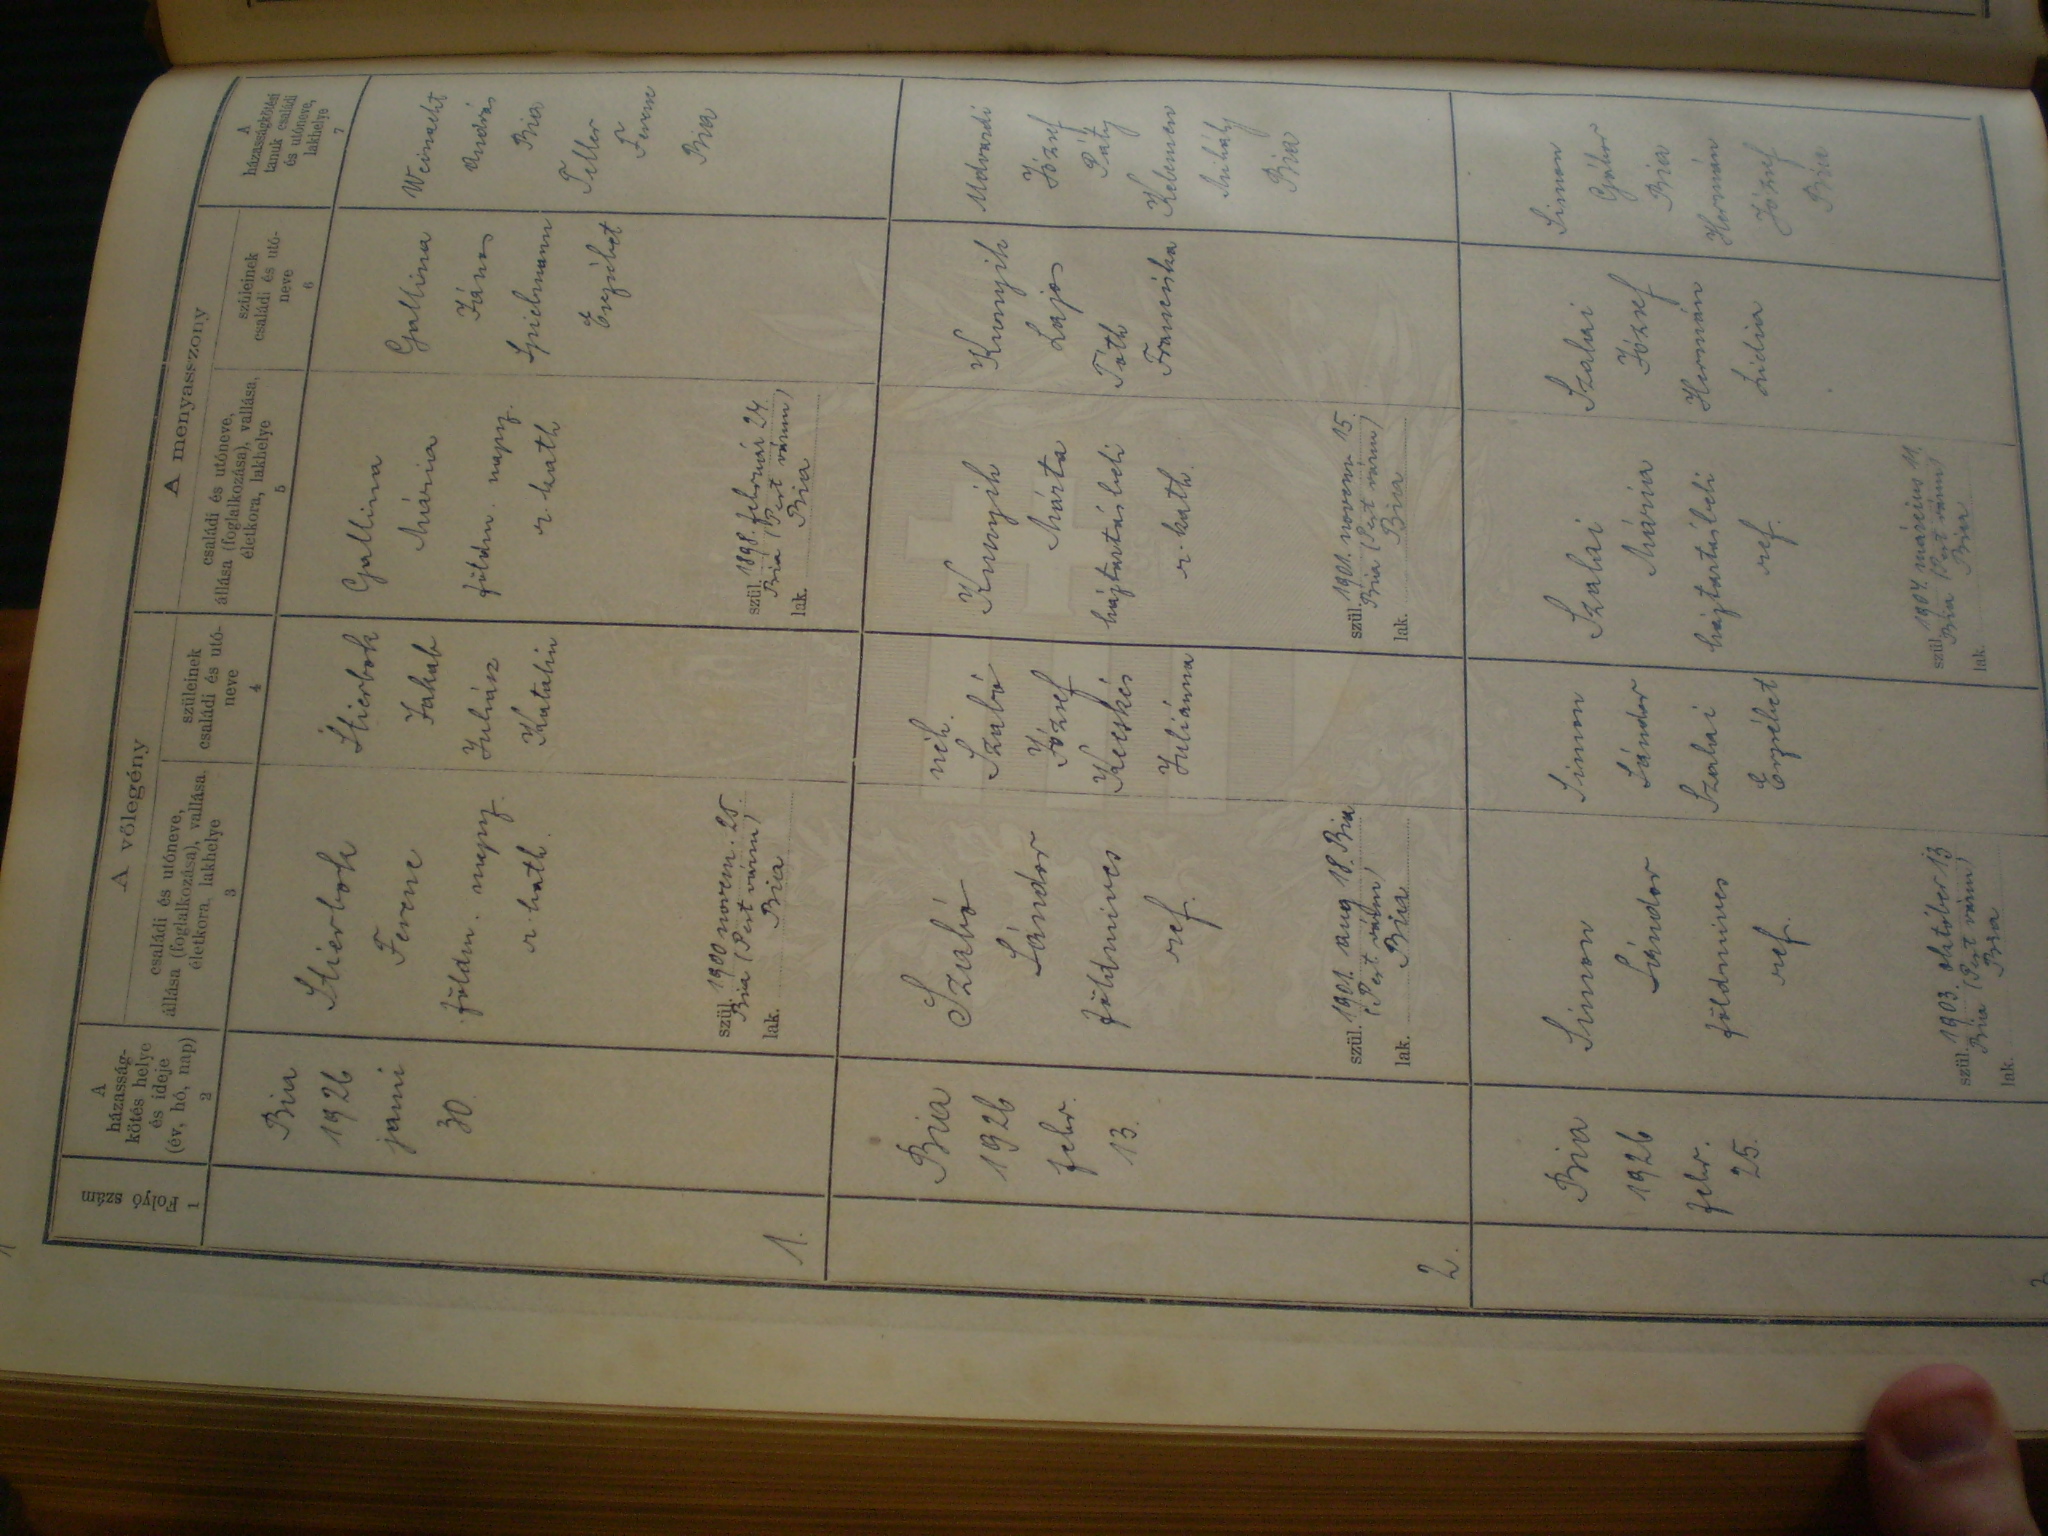 A vőlegény
A menyasszony
Folyó szám
1
A
házasság-
kötés helye
és ideje
(év, hó, nap)
2
családi és utóneve,
állása (foglalkozása), vallása,
életkora, lakhelye
3
szüleinek
családi és utó-
neve
4
családi és utóneve,
állása (foglalkozása), vallása,
életkora, lakhelye
5
szüleinek
családi és utó-
neve
6
A
házasságkötési
tanuk családi
és utóneve,
lakhelye
7
1.
Bia
1926
januá
30.
Stierbok
Ferenc
földm. napsz.
r. kath.
szül. 1900 novem. 25.
Bia (Pest várm)
lak. Bia
Stierbok
Jakab
Juhász
Katalin
Gallina
Mária
földm. napsz.
r. kath
szül. 1898. február 24.
Bia (Pest várm)
lak. Bia
Gallina
János
Spielmann
Erzsébet
Weinacht
András
Bia
Teller
Ferenc
Bia
2.
Bia
1926
febr.
13.
Szabó
Sándor
földmives
ref.
szül. 1901. aug 18. Bia
(Pest várm)
lak. Bia
néh.
Szabó
József
Kecskés
Juliánna
Kunyik
Márta
háztartásbeli
r. kath.
szül. 1901. novem. 15
Bia (Pest várm)
lak. Bia
Kunyik
Lajos
Tóth
Franciska
Udvardi
József
Páty
Kelemen
Mihály
Bia
Bia
1926
febr.
25.
Simon
Sándor
földmives
ref.
szül. 1903. október 13
Bia (Pest várm)
lak. Bia
Simon
Sándor
Szalai
Erzsébet
Szalai
Mária
háztartásbeli
ref.
szül. 1904. március 11
Bia (Pest várm)
lak. Bia
Szalai
József
Hermán
Lidia
Simon
Gábor
Bia
Hermán
József
Bia